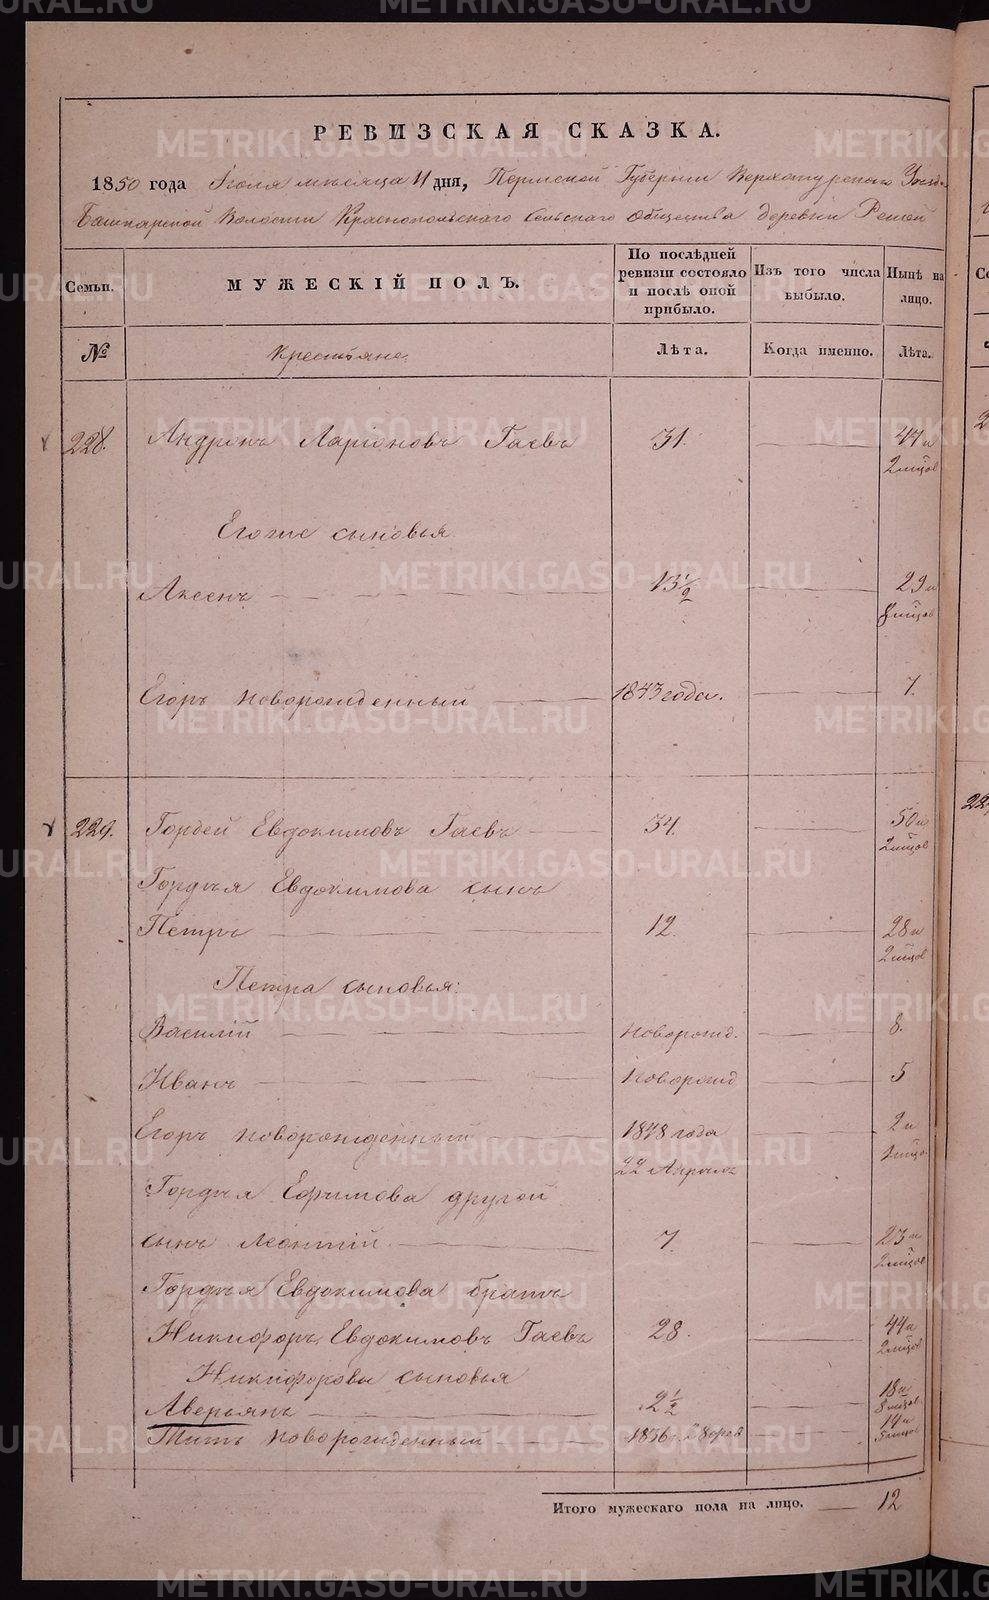 РЕВИЗСКАЯ СКАЗКА.
1850 года Іюля мѣсяца 11 дня, Пермской Губерніи Верхотурскаго Уѣзда
Башкарской Волости Краснопольскаго Сельскаго Общества деревни Решей
Семьи. МУЖЕСКІЙ ПОЛЪ. По послѣдней ревизіи состояло и послѣ оной прибыло. Изъ того числа выбыло. Нынѣ на лицо.
№ Крестьяне. Лѣта. Когда именно. Лѣта.
228. Андронъ Ларіоновъ Гаевъ 31. 47 и
2 мѣсяц
Егоже сыновья
Аксенъ 13 1/2 29 и
мѣсяц
Егоръ новорожденный 1843 года. 7.
229. Гордей Евдокимовъ Гаевъ 34. 50 и
2 мѣсяц
Гордѣя Евдокимова сынъ
Петръ 12. 28 и
2 мѣсяц
Петра сыновья:
Василій новорожд. 8.
Иванъ новорожд 5
Егоръ новорожденный 1848 года 2 и
22 Апрѣля мѣсяц
Гордѣя Ефимова другой
сынъ Леонтій 7. 23 и
2 мѣсяц
Гордѣя Евдокимова братъ
Никифоръ Евдокимовъ Гаевъ 28. 44 и
2 мѣсяц
Никифоровы сыновья
Аверьянъ 2 1/2 18 и
8 мѣсяц
Титъ новорожденный 1836 14 и
5 мѣсяц
Итого мужескаго пола на лицо. 12
METRIKI.GASO-URAL.RU